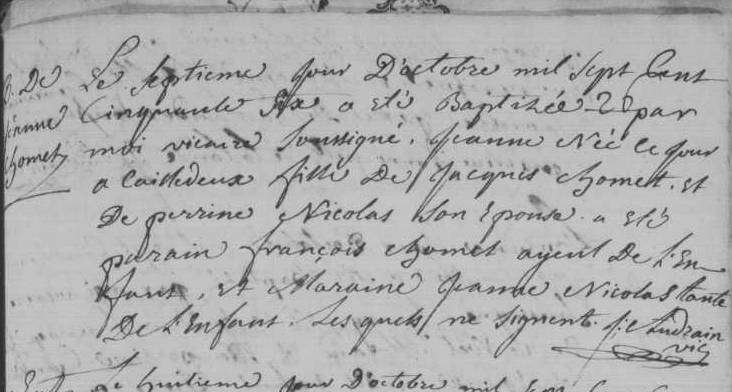 B. De
jeanne
chomet
Le Septieme jour D'octobre mil Sept Cent
Cinquante Six a eté Baptisée par
moi vicaire Soussigné. jeanne Née ce jour
a Cailledeux fille De jacques chomet. et
De perrine Nicolas Son Epouse. a eté
parain françois chomet ayeul De L'En
fant, et Maraine jeanne Nicolas tante
De L'Enfant. Lesquels ne Signent.
vic
Le huitieme jour D'octobre mil Sept